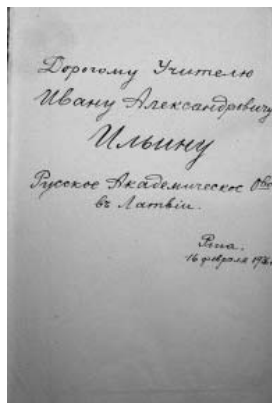 Дорогому Учителю
Ивану Александровичу
Ильину
Русское Академическое О-во
въ Латвіи.
Рига.
16 февраля